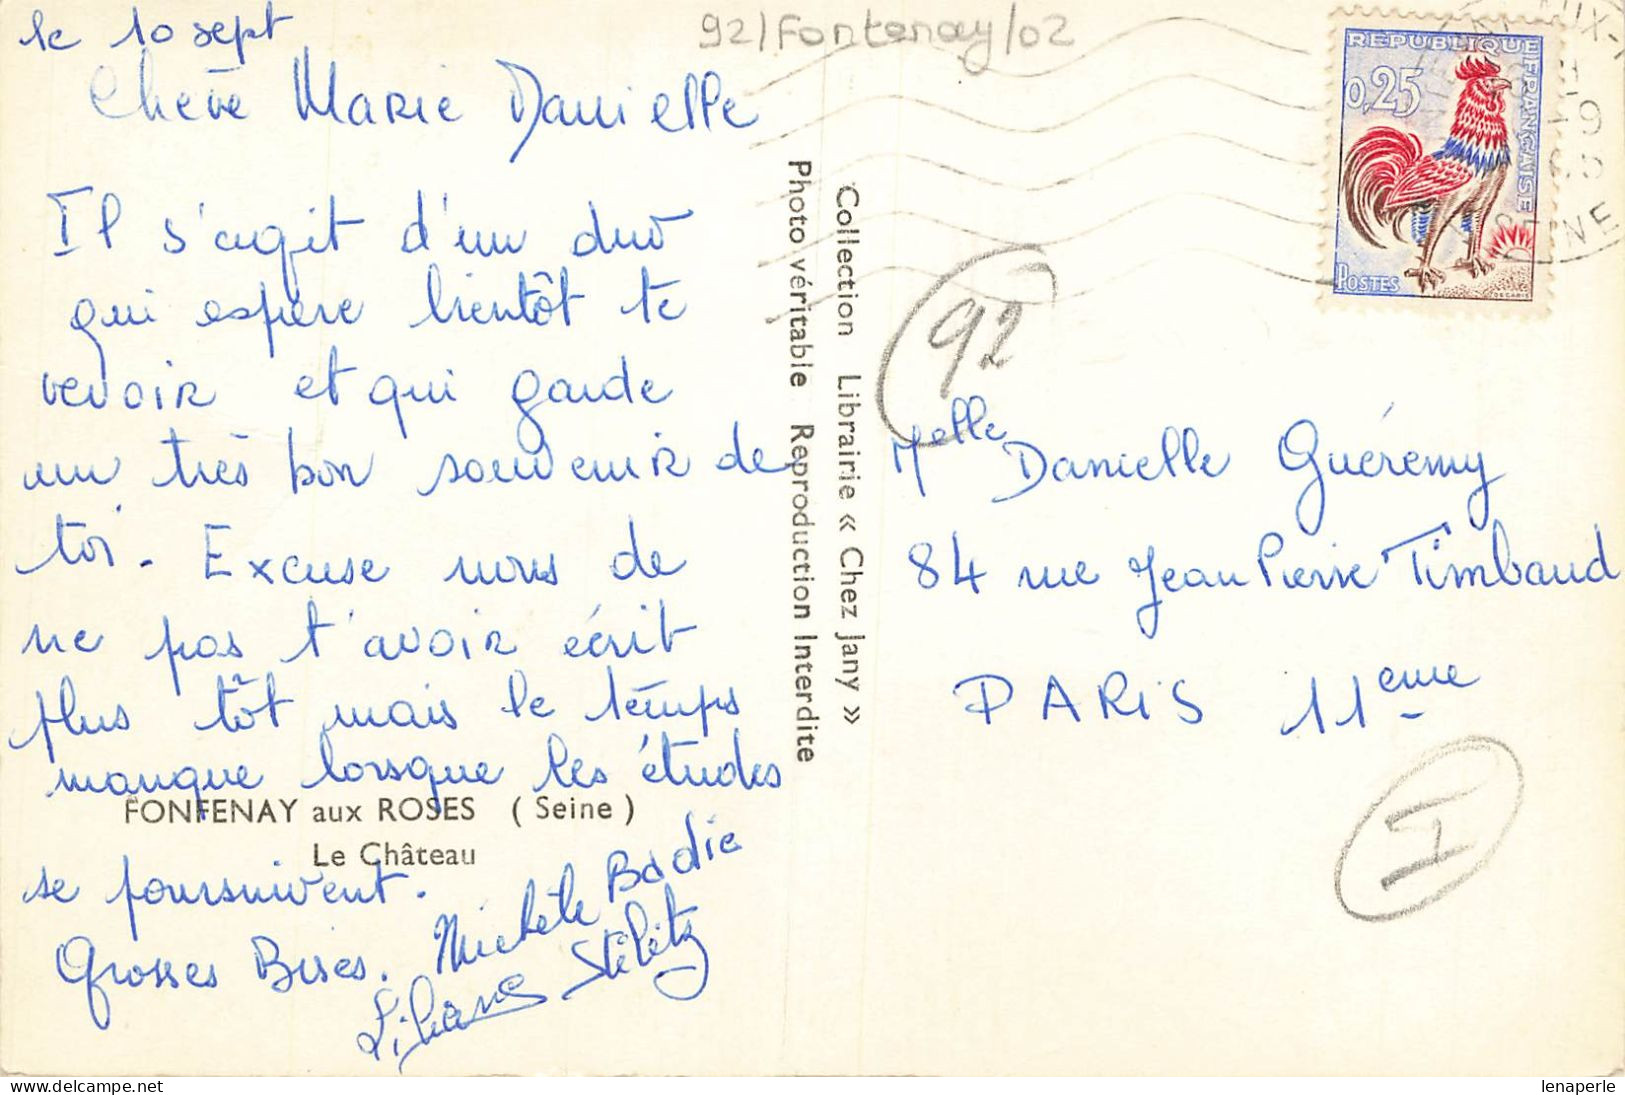 92/Fontenay/02
le 10 sept
Chère Marie Danielle
Il s'agit d'un duo
qui espère bientôt te
revoir et qui garde
un très bon souvenir de
toi. Excuse nous de
ne pas t'avoir écrit
plus tôt mais le temps
manque lorsque les études
se poursuivent.
Grosses Bises. Michèle Bodic
Liliane
FONFENAY aux ROSES (Seine)
Le Château
Photo véritable Reproduction Interdite
Collection Librairie « Chez Jany »
REPUBLIQUE FRANÇAISE
0,25
POSTES
DECARIS
SEINE
92
Melle Danielle Guéremy
84 rue Jean Pierre Timbaud
PARIS 11eme
I
lenaperle